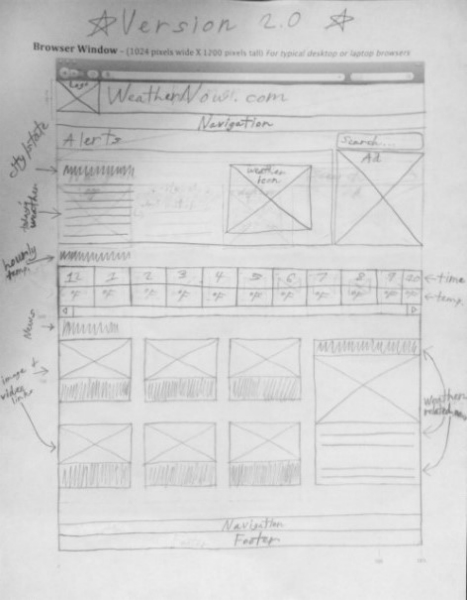 ☆ Version 2.0 ☆
Browser Window – (1024 pixels wide X 1200 pixels tall) For typical desktop or laptop browsers
Logo
WeatherNow!.com
Navigation
Alerts
Search...
Ad
Weather Icon
weather
hourly temp.
12 1 2 3 4 5 6 7 8 9 10
time
°F °F °F °F °F °F °F °F °F °F °F
temp.
News
image +
video
links
weather
Navigation
Footer